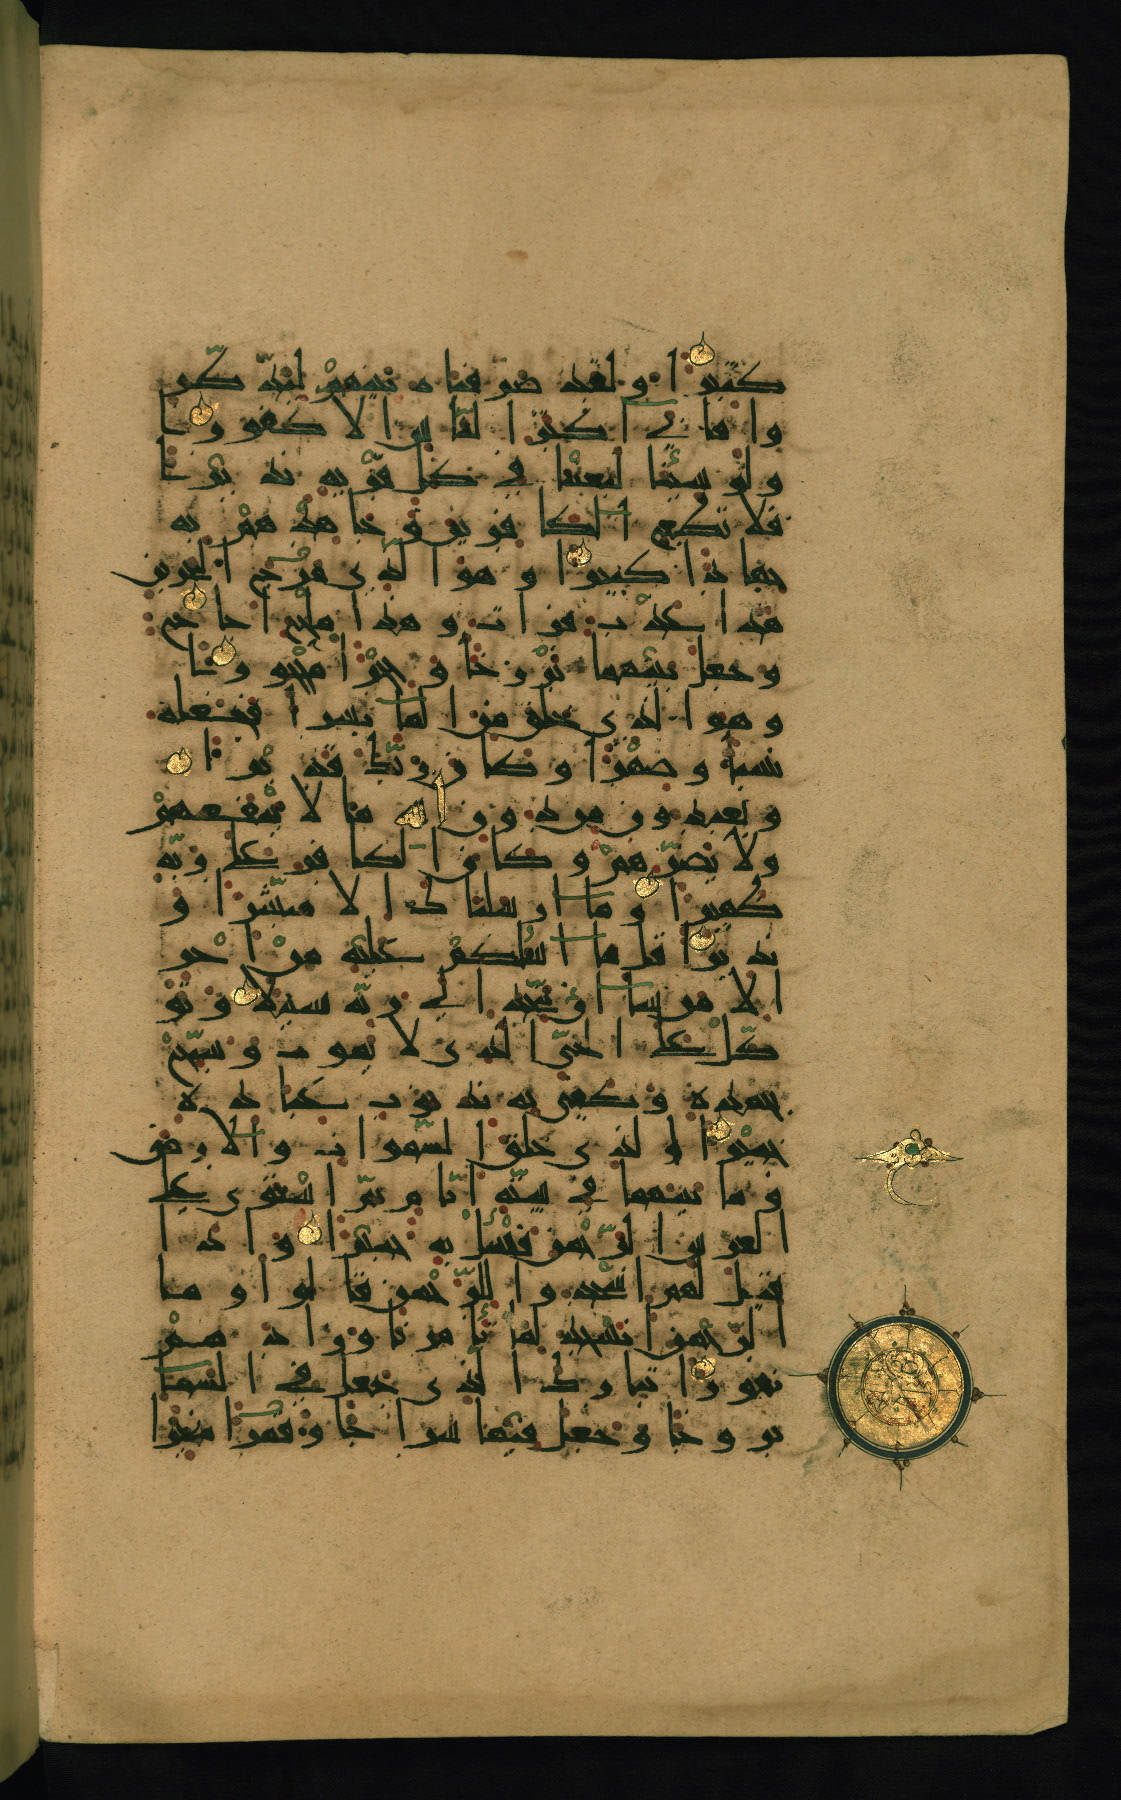 كثيرا ولقد صرفناه بينهم ليذكر
وا فابى اكثر الناس الا كفورا
ولو شئنا لبعثنا في كل قرية نذيرا
فلا تطع الكافرين وجاهدهم به
جهادا كبيرا وهو الذي مرج البحرين
هذا عذب فرات وهذا ملح اجاج
وجعل بينهما برزخا وحجرا محجورا
وهو الذي خلق من الما بشرا فجعله
نسبا وصهرا وكان ربك قديرا
ويعبدون من دون الله ما لا ينفعهم
ولا يضرهم وكان الكافر على ربه
ظهيرا وما ارسلناك الا مبشرا و
نذيرا قل ما اسئلكم عليه من اجر
الا من شا ان يتخذ الى ربه سبيلا وتو
كل على الحي الذي لا يموت وسبح
بحمده وكفى به بذنوب عباده
خبيرا الذي خلق السموات والارض
وما بينهما في ستة ايام ثم استوى على
العرش الرحمن فسئل به خبيرا واذا
قيل لهم اسجدوا للرحمن قالوا وما
الرحمن انسجد لما تامرنا وزادهم
نفورا تبارك الذي جعل في السما
بروجا وجعل فيها سراجا وقمرا منيرا